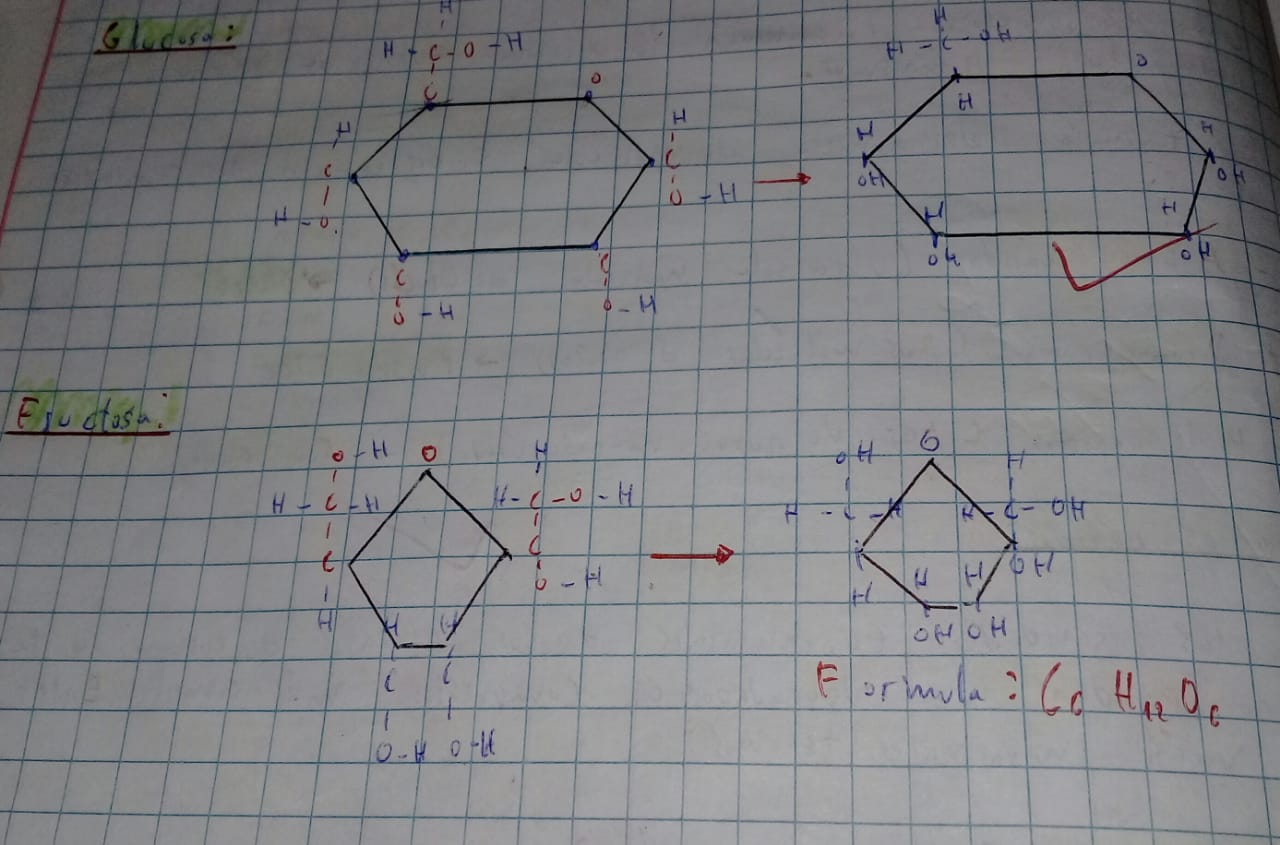 Glucosa:
H
H - C - O - H
C
O
H
H
C
C
H - O
O - H
C
C
O - H
O - H
H
H - C - OH
O
H
H
H
OH
OH
H
H
OH
OH
Fructosa:
O - H
O
H
H - C - H
H - C - O - H
C
C
H
O - H
H
H
C
C
O - H
O - H
OH
O
H
H - C - H
H - C - OH
H
H
H
OH
OH
OH
Formula: C6 H12 O6